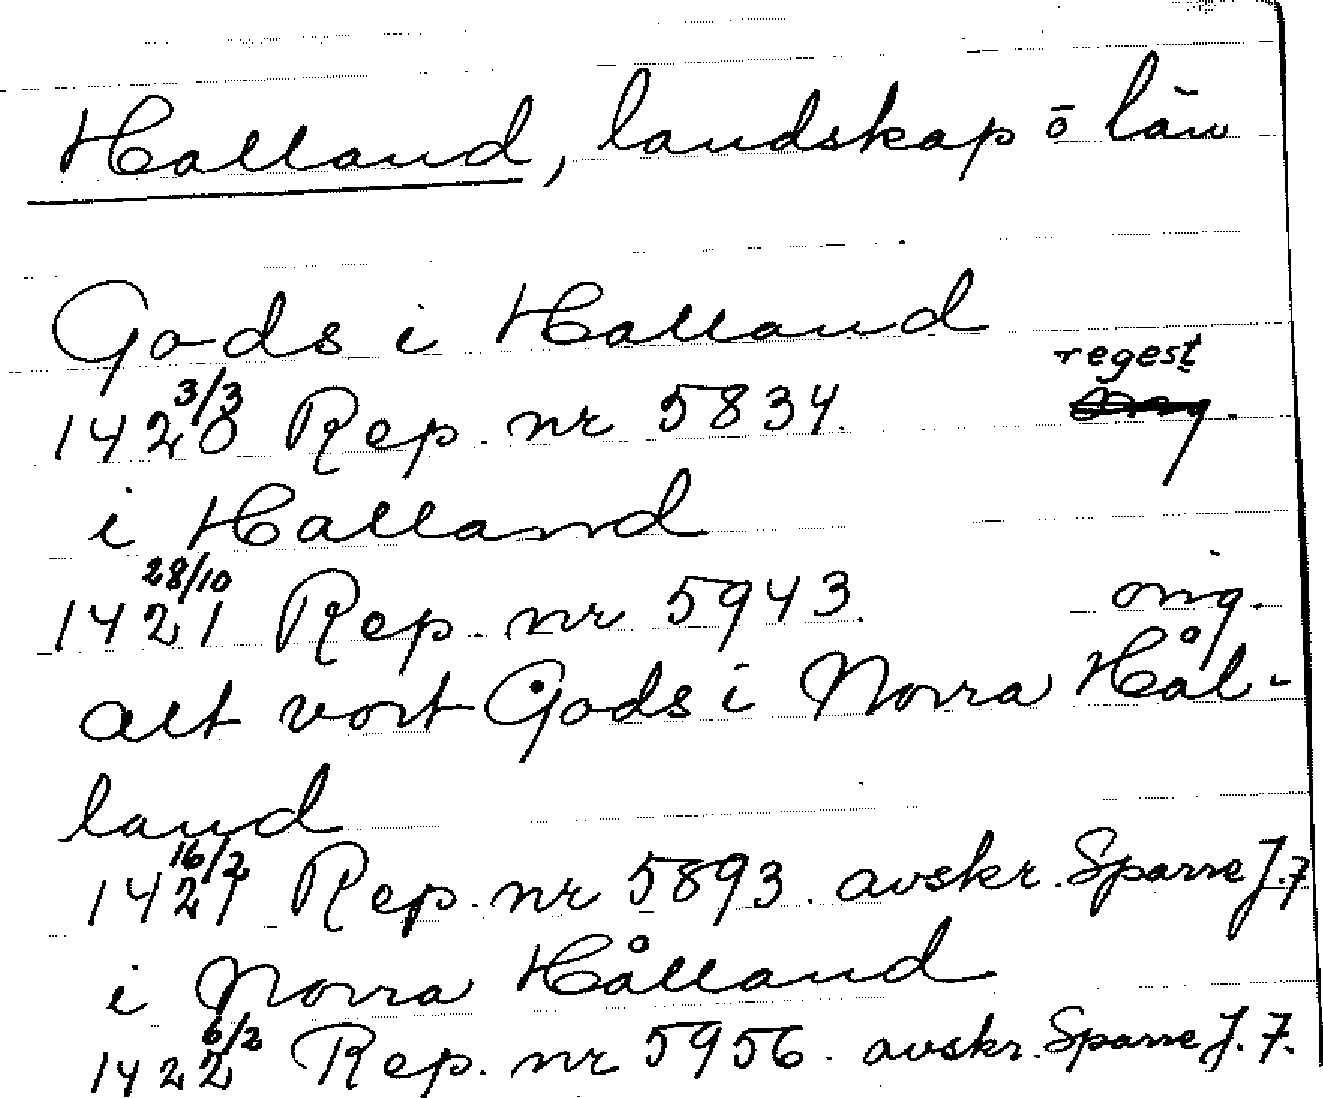 Halland, landskap o län
Gods i Halland
regest
3/3
1420 Rep. nr 5834.
i Halland
28/10
1421 Rep. nr 5943. orig.
alt vort Gods i Norra Hål-
land
16/2
1421 Rep. nr 5893. avskr. Sparre J. 7
i Norra Hålland
6/2
1422 Rep. nr 5956. avskr. Sparre J. 7.